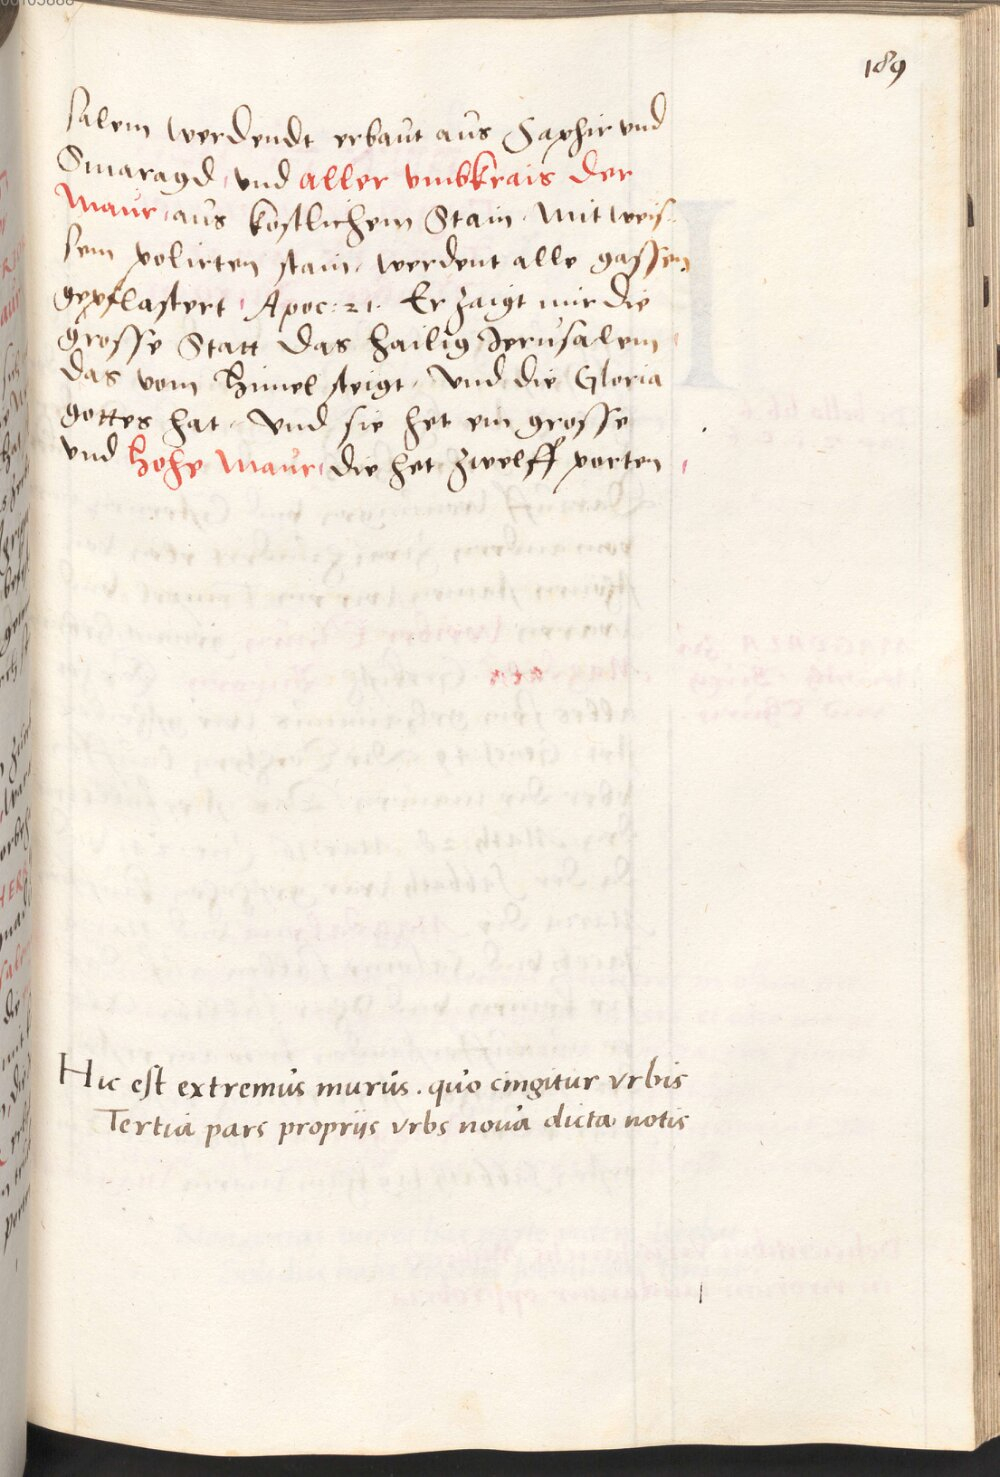 189
salem werdendt erbaut aus Saphir und
Smaragd, und aller umbkrais der
Maur, aus kostlichem Stain. Mit weis-
sem polirten stain, werdent alle gassen
gepflastert, Apoc: 21. Er zaigt mir die
grosse Statt das hailig Jerusalem
das vom Himel steigt, Und die Gloria
gottes hat, Und sie het ein grosse
und hohe Maur, die het zwelff porten,
Hic est extremus murus. quo cingitur vrbis
Tertia pars proprijs vrbs nova dicta notis